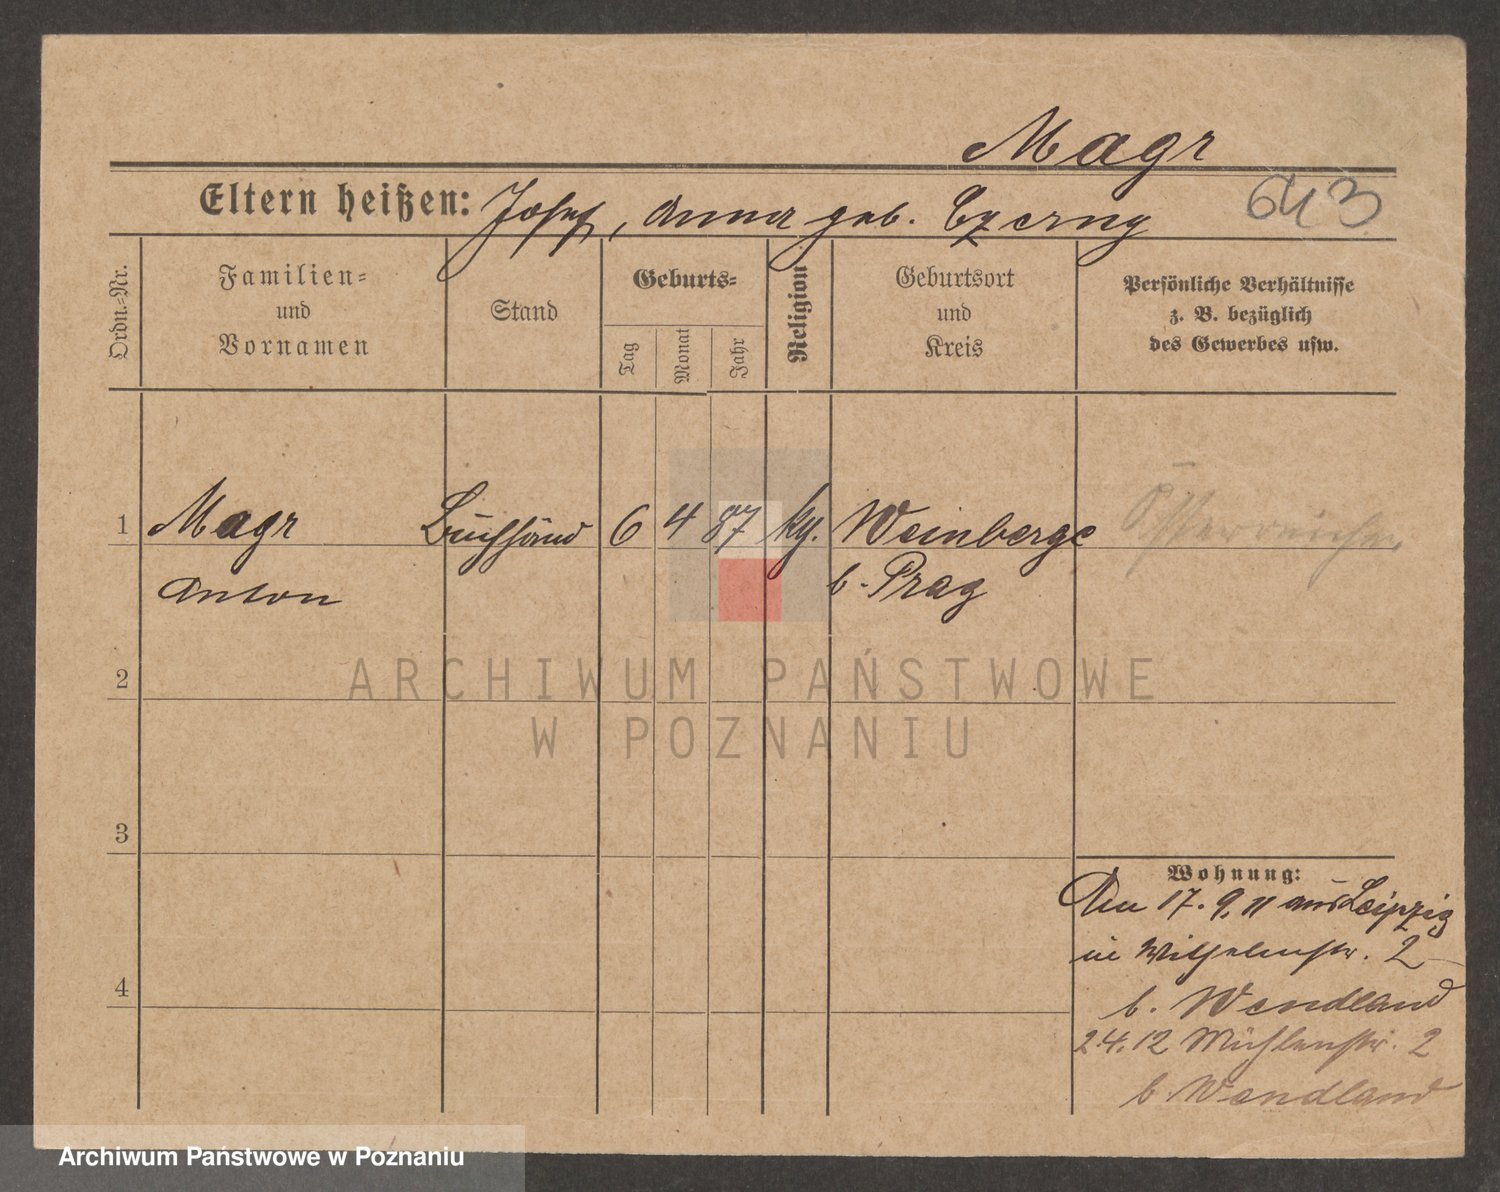 Magr
643
Eltern heißen: Josef, Anna geb. Czerny
Ordn.-Nr.
Familien-
und
Vornamen
Stand
Geburts-
Tag
Monat
Jahr
Religion
Geburtsort
und
Kreis
Persönliche Verhältnisse
z. B. bezüglich
des Gewerbes usw.
1 Magr Buchhänd 6 4 87 kg. Weinberge Österreicher
Anton b. Prag
2
ARCHIWUM PAŃSTWOWE
W POZNANIU
3
Wohnung:
Am 17. 9. 11 aus Leipzig
in Wilhelmstr. 2
4
b. Wendland
2.4.12 Mühlenstr. 2
b. Wendland
Archiwum Państwowe w Poznaniu